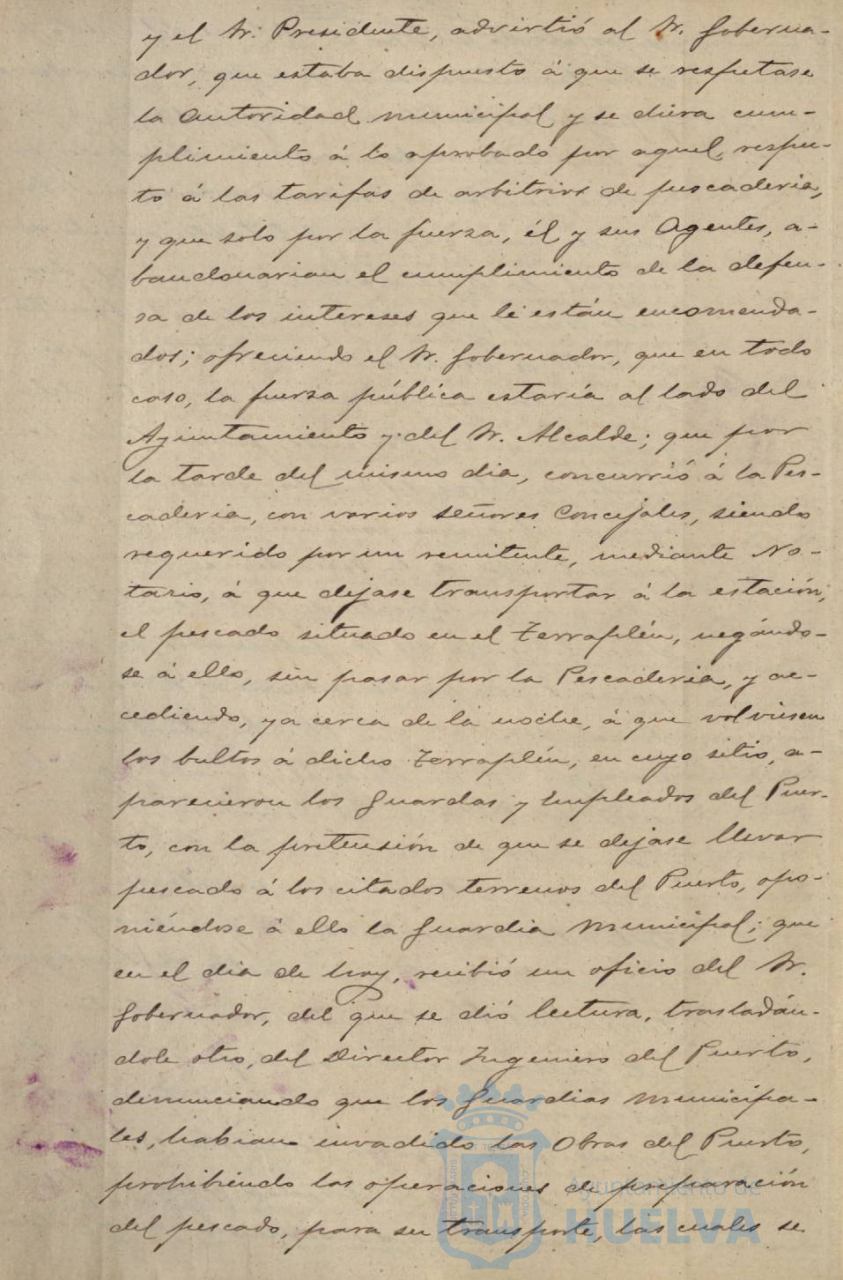 y el Sr. Presidente, advirtió al Sr. Goberna-
dor, que estaba dispuesto á que se respetase
la autoridad municipal y se diera cum-
plimiento á lo aprobado por aquel, respec-
to á las tarifas de arbitrios de pescaderia,
y que solo por la fuerza, él y sus Agentes, a-
bandonarian el cumplimiento de la defen-
sa de los intereses que le están encomenda-
dos; ofreciendo el Sr. Gobernador, que en todo
caso, la fuerza pública estaría al lado del
Ayuntamiento y del Sr. Alcalde; que por
la tarde del mismo dia, concurrió á la Pes-
caderia, con varios señores Concejales, siendo
requerido por un remitente, mediante No-
tario, á que dejase transportar á la estación,
el pescado situado en el Terraplén, negándo-
se á ello, sin pasar por la Pescaderia, y ac-
cediendo, ya cerca de la noche, á que volviesen
los bultos á dicho Terraplén, en cuyo sitio, a-
parecieron los Guardas y Empleados del Puer-
to, con la pretensión de que se dejase llevar
pescado á los citados terrenos del Puerto, opo-
niéndose á ello la Guardia Municipal; que
en el dia de hoy, recibió un oficio del Sr.
Gobernador, del que se dió lectura, trasladán-
dole otro, del Director Ingeniero del Puerto,
denunciando que los Guardias Municipa-
les, habian invadido las Obras del Puerto,
prohibiendo las operaciones de preparación
del pescado, para su transporte, las cuales se
Ayuntamiento de
HUELVA